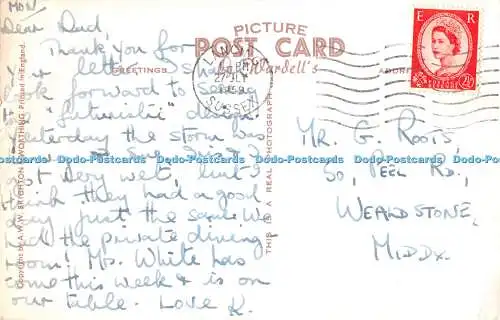 MON
Dear Dad,
Thank you for
your letter. I shall
look forward to seeing
"futuristic" desk.
Yesterday the storm was
got very wet, but I
think they had a good
day just the same. We
had the private dining
room! Mrs. White has
come this week & is on
our table. Love K.
PICTURE
POST CARD
GREETINGS
Wardell's
ADDRE
27 JLY
1959
SUSSEX
E R
POSTAGE
REVENUE
2½D
Mr. G. Roots,
50, Peel Rd,
WEALDSTONE,
MIDDX.
Copyright by A.W.W. BRIGHTON & WORTHING. Printed in England.
THIS IS A REAL PHOTOGRAPH
Dodo-Postcards Dodo-Postcards Dodo-Postcards Dodo-Postcards Dodo-Postcards Dodo-Postcards Dodo-Postcards